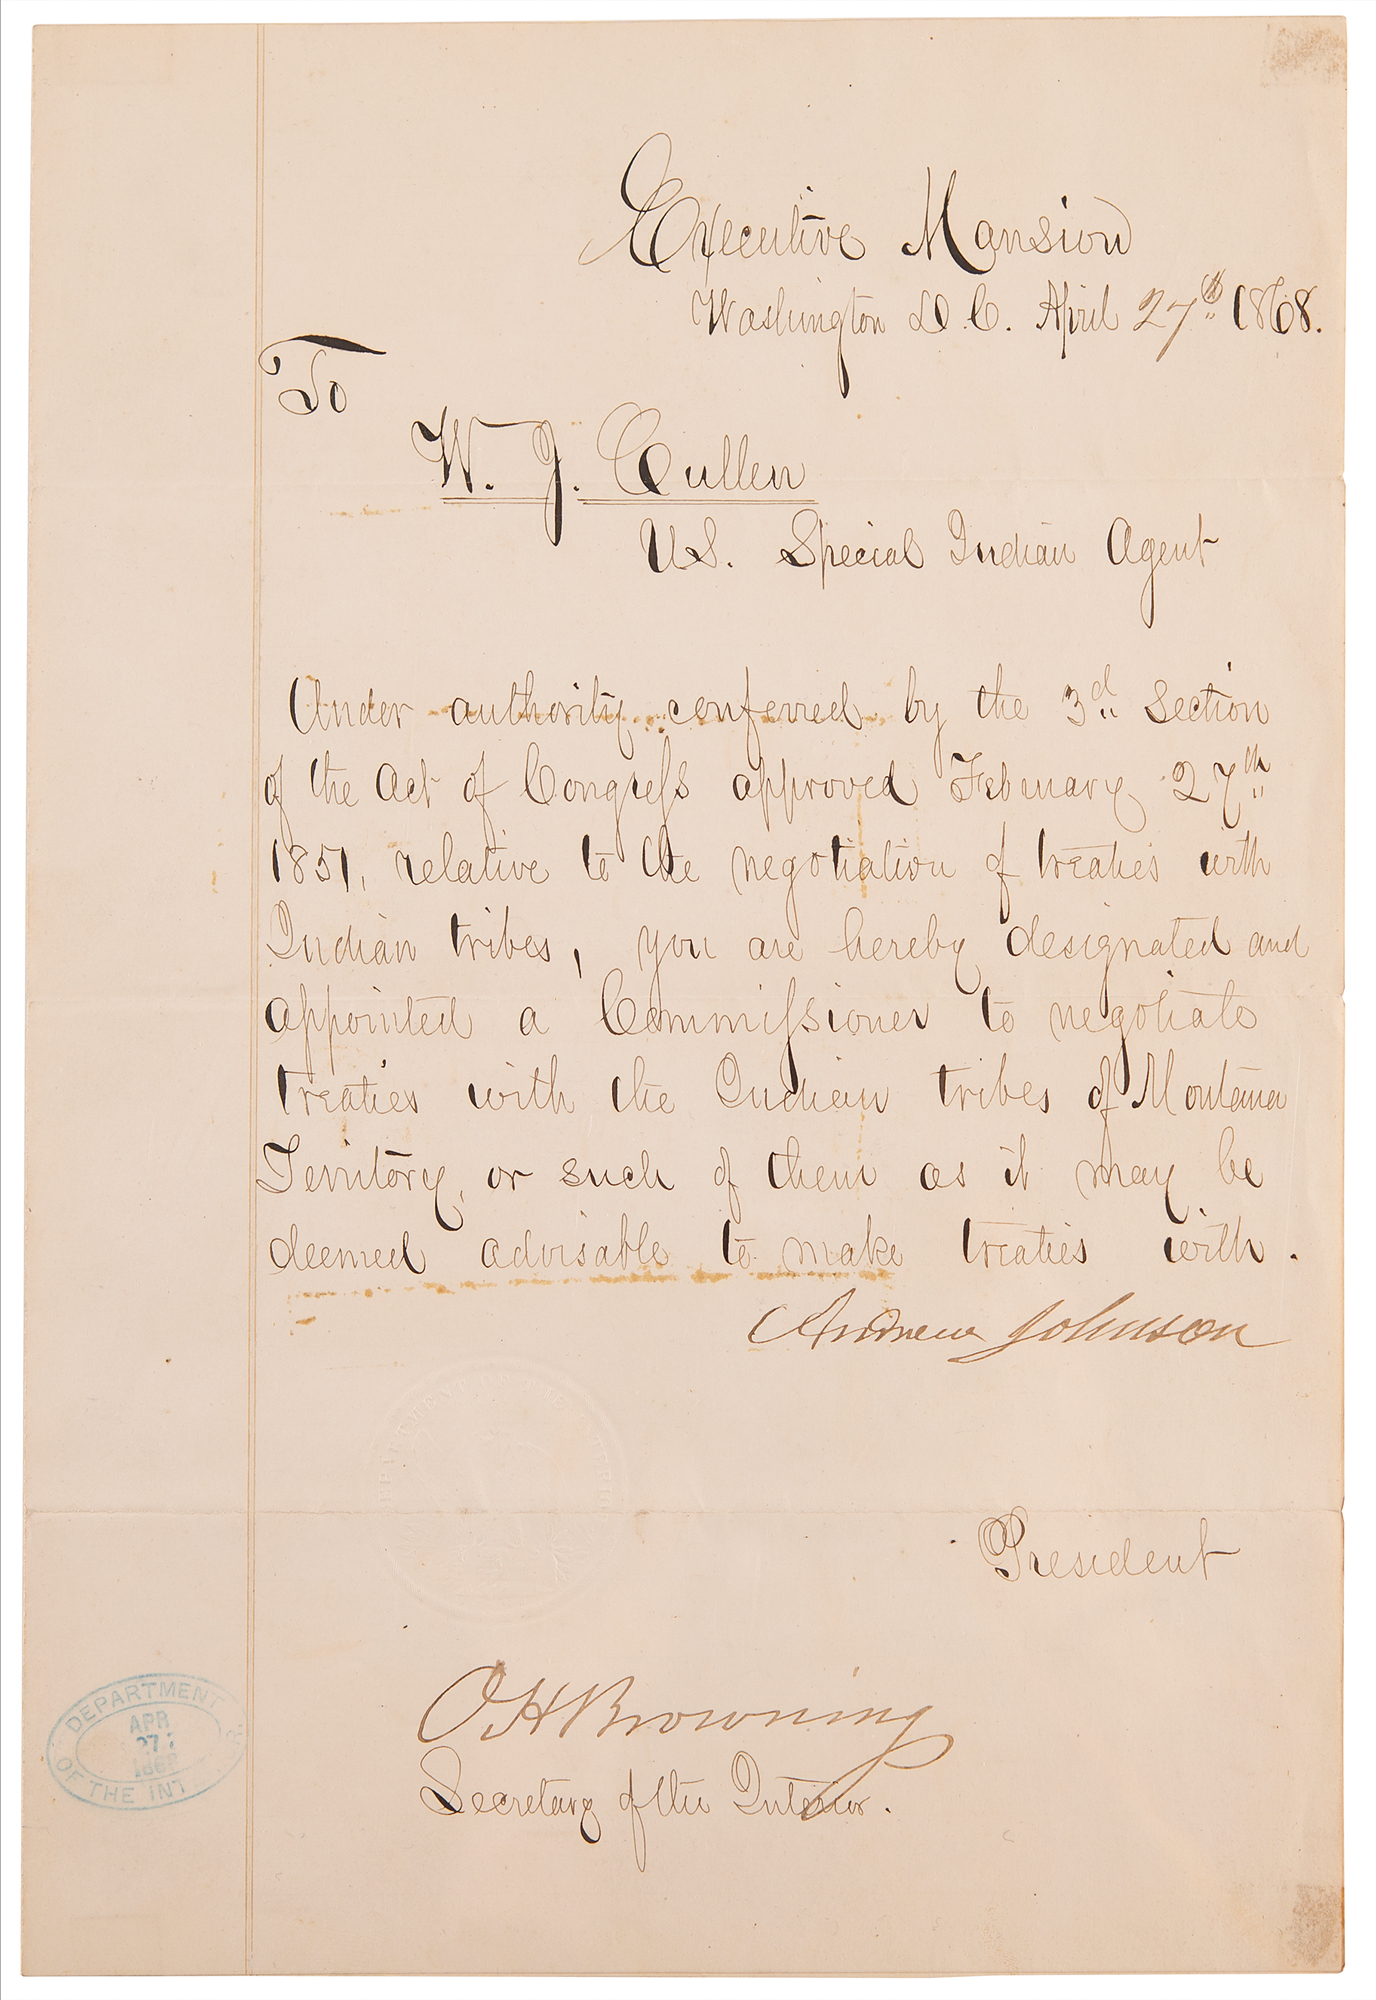 Executive Mansion
Washington D.C. April 27th 1868.
To
W. J. Cullen
U.S. Special Indian Agent
Under authority conferred by the 3d Section
of the Act of Congress approved February 27th
1851, relative to the negotiation of treaties with
Indian tribes, you are hereby designated and
appointed a Commissioner to negotiate
treaties with the Indian tribes of Montana
Territory, or such of them as it may be
deemed advisable to make treaties with.
Andrew Johnson
President
O H Browning
Secretary of the Interior.
DEPARTMENT
APR
27
1868
OF THE INT